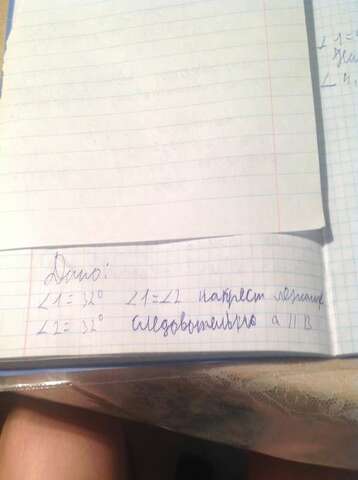 ∠1=
∠
Дано:
∠1=32° ∠1=∠2 накрест лежащие
∠2=32° следовательно a || в